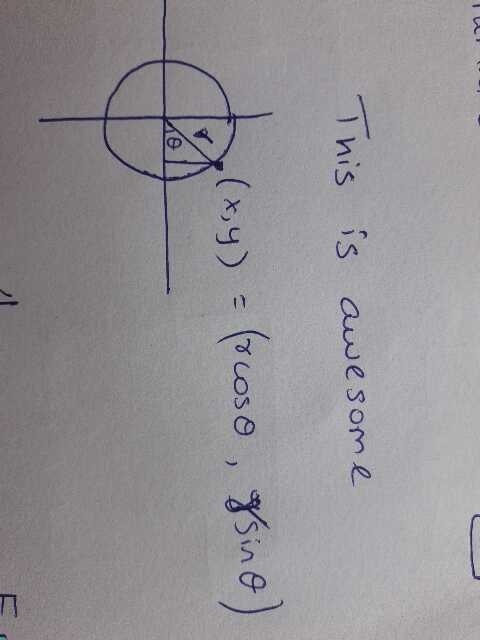 This is awesome
r
θ
(x,y) = (rcosθ, rsinθ)